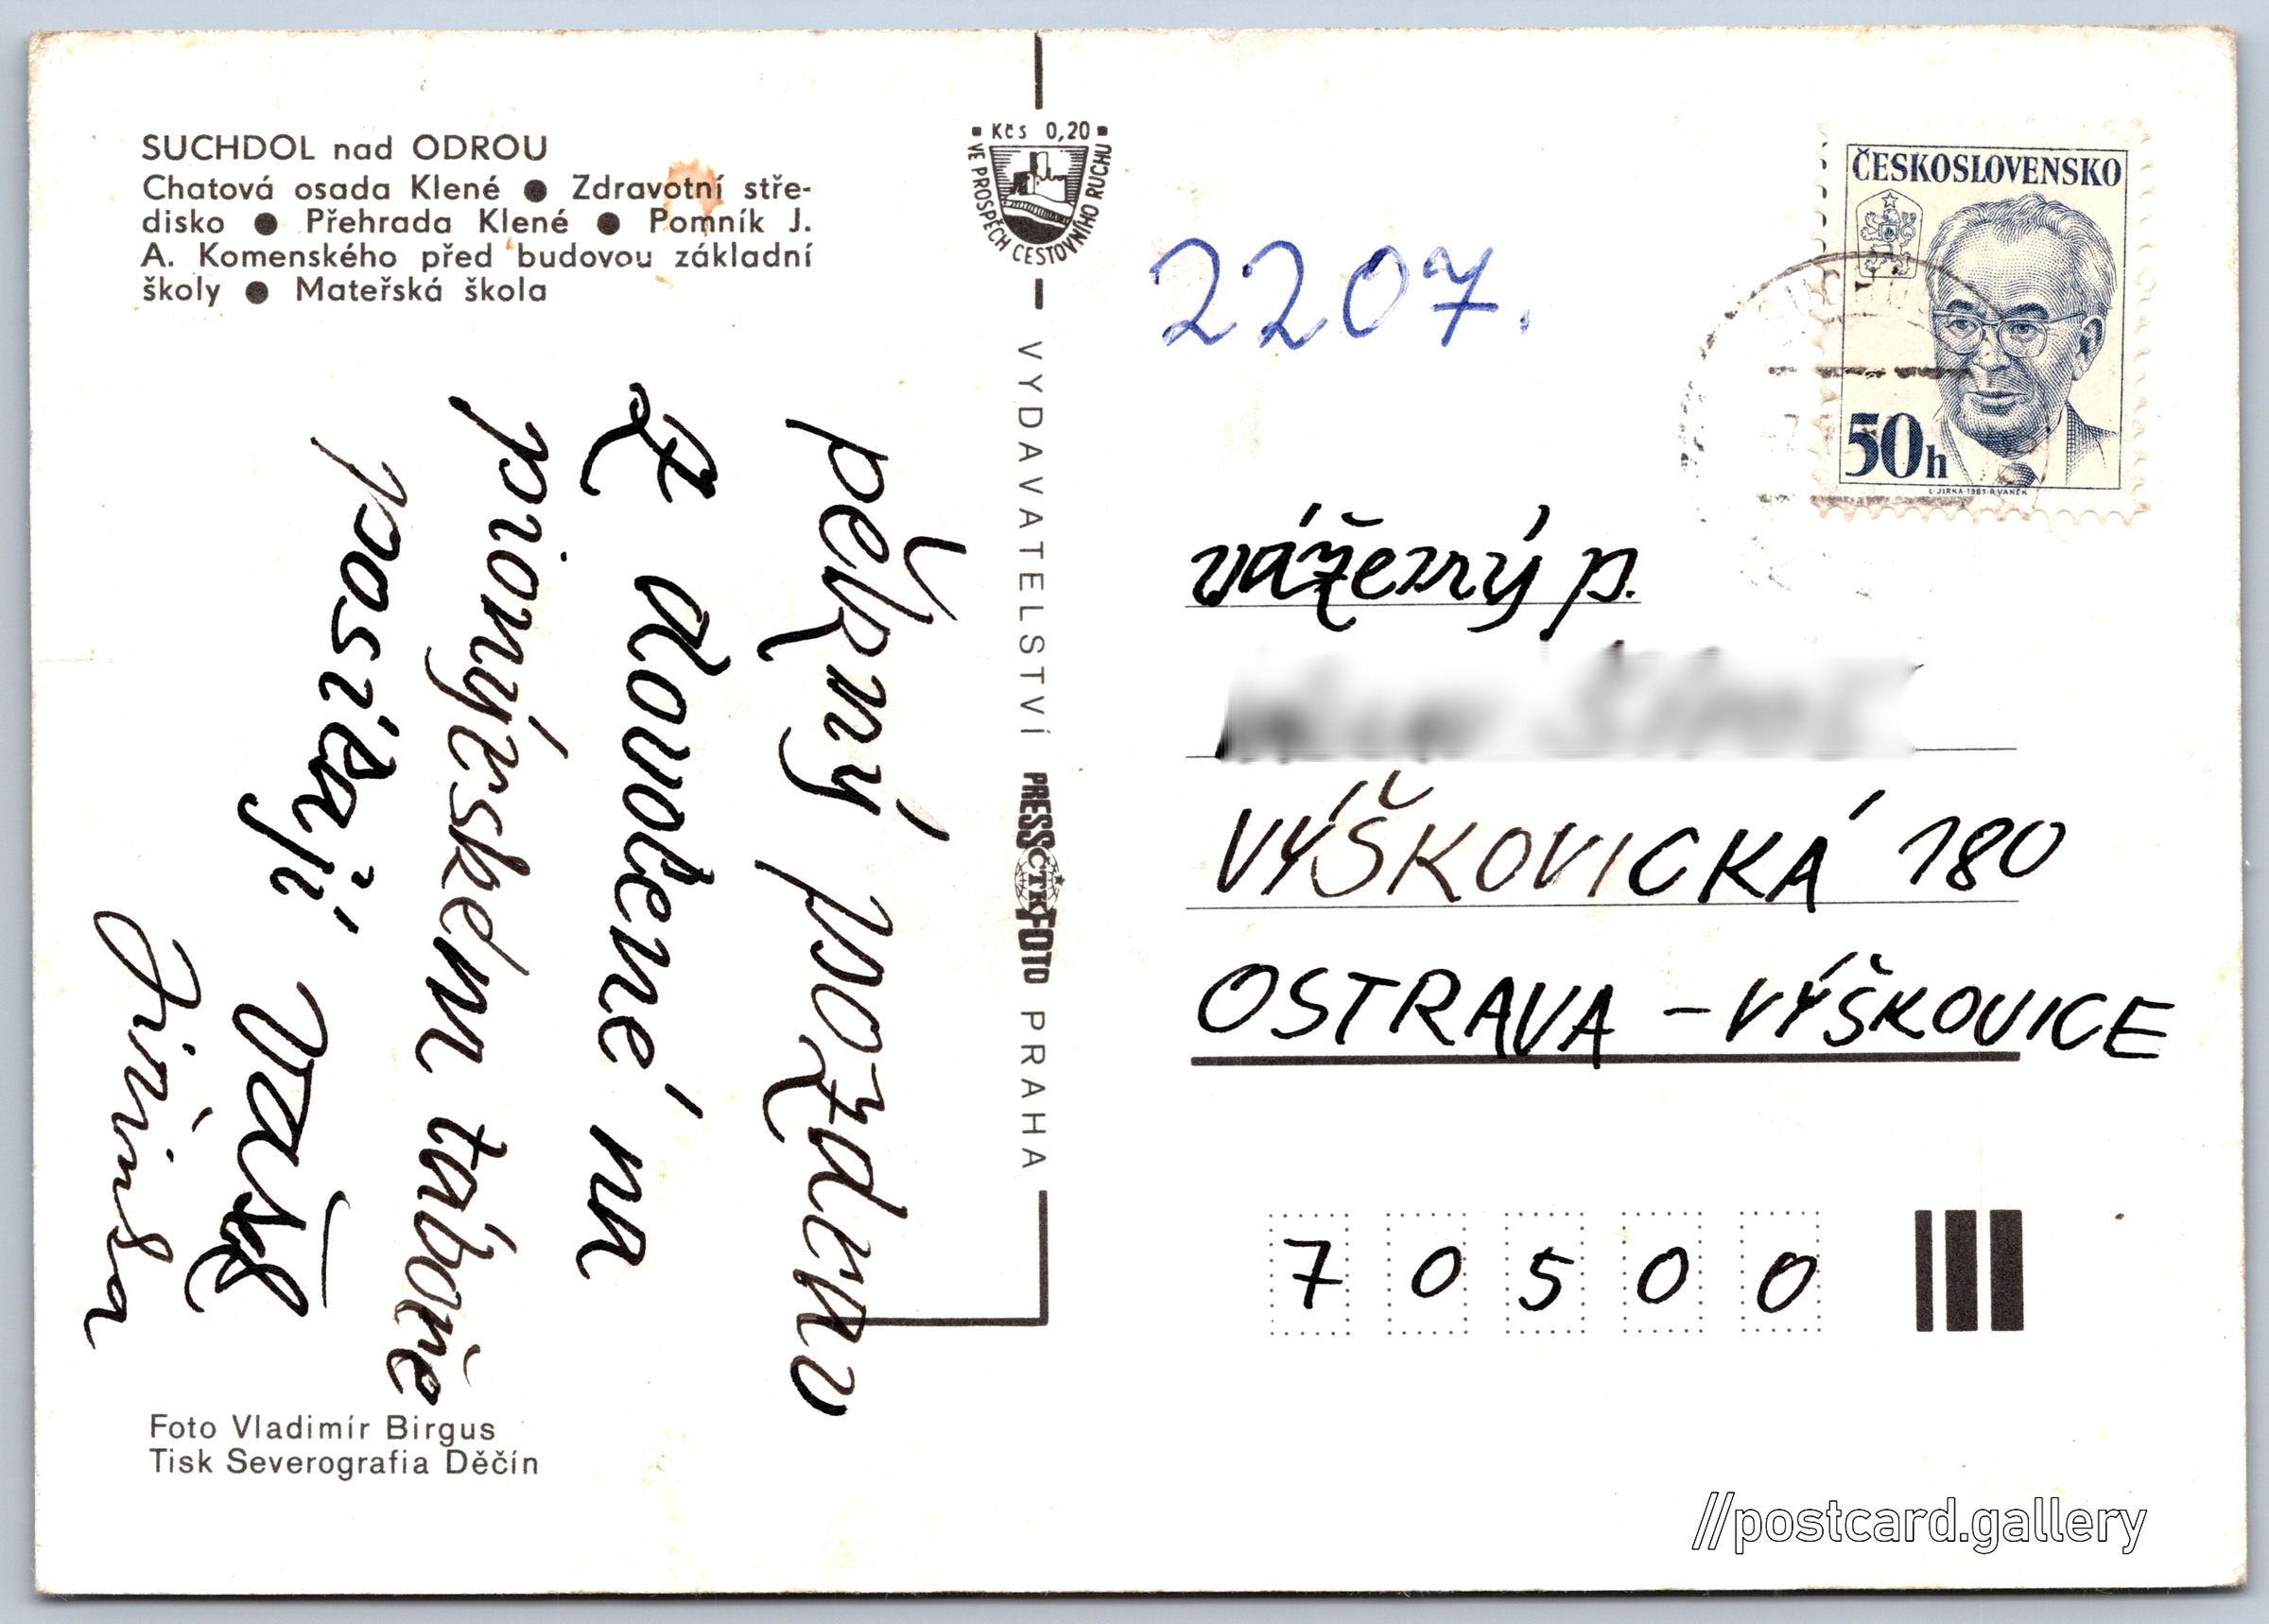 SUCHDOL nad ODROU
Chatová osada Klené ● Zdravotní stře-
disko ● Přehrada Klené ● Pomník J.
A. Komenského před budovou základní
školy ● Mateřská škola
pěkný pozdrav
Z dovolené na
pionýrském táboře
posílají
Vašk
Jiřinka
Foto Vladimír Birgus
Tisk Severografia Děčín
Kčs 0,20
VE PROSPĚCH CESTOVNÍHO RUCHU
VYDAVATELSTVÍ PRESSFOTO PRAHA
ČTK
2207.
ČESKOSLOVENSKO
50h
L. JIRKA · 1983 · R. VANĚK
vážený p.
VÝŠKOVICKÁ 180
OSTRAVA - VÝŠKOVICE
7 0 5 0 0
//postcard.gallery